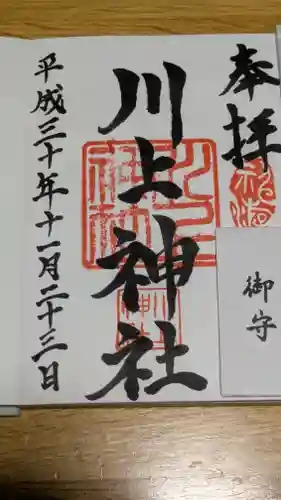 奉拝
川上神社
平成三十年十一月二十三日
御守